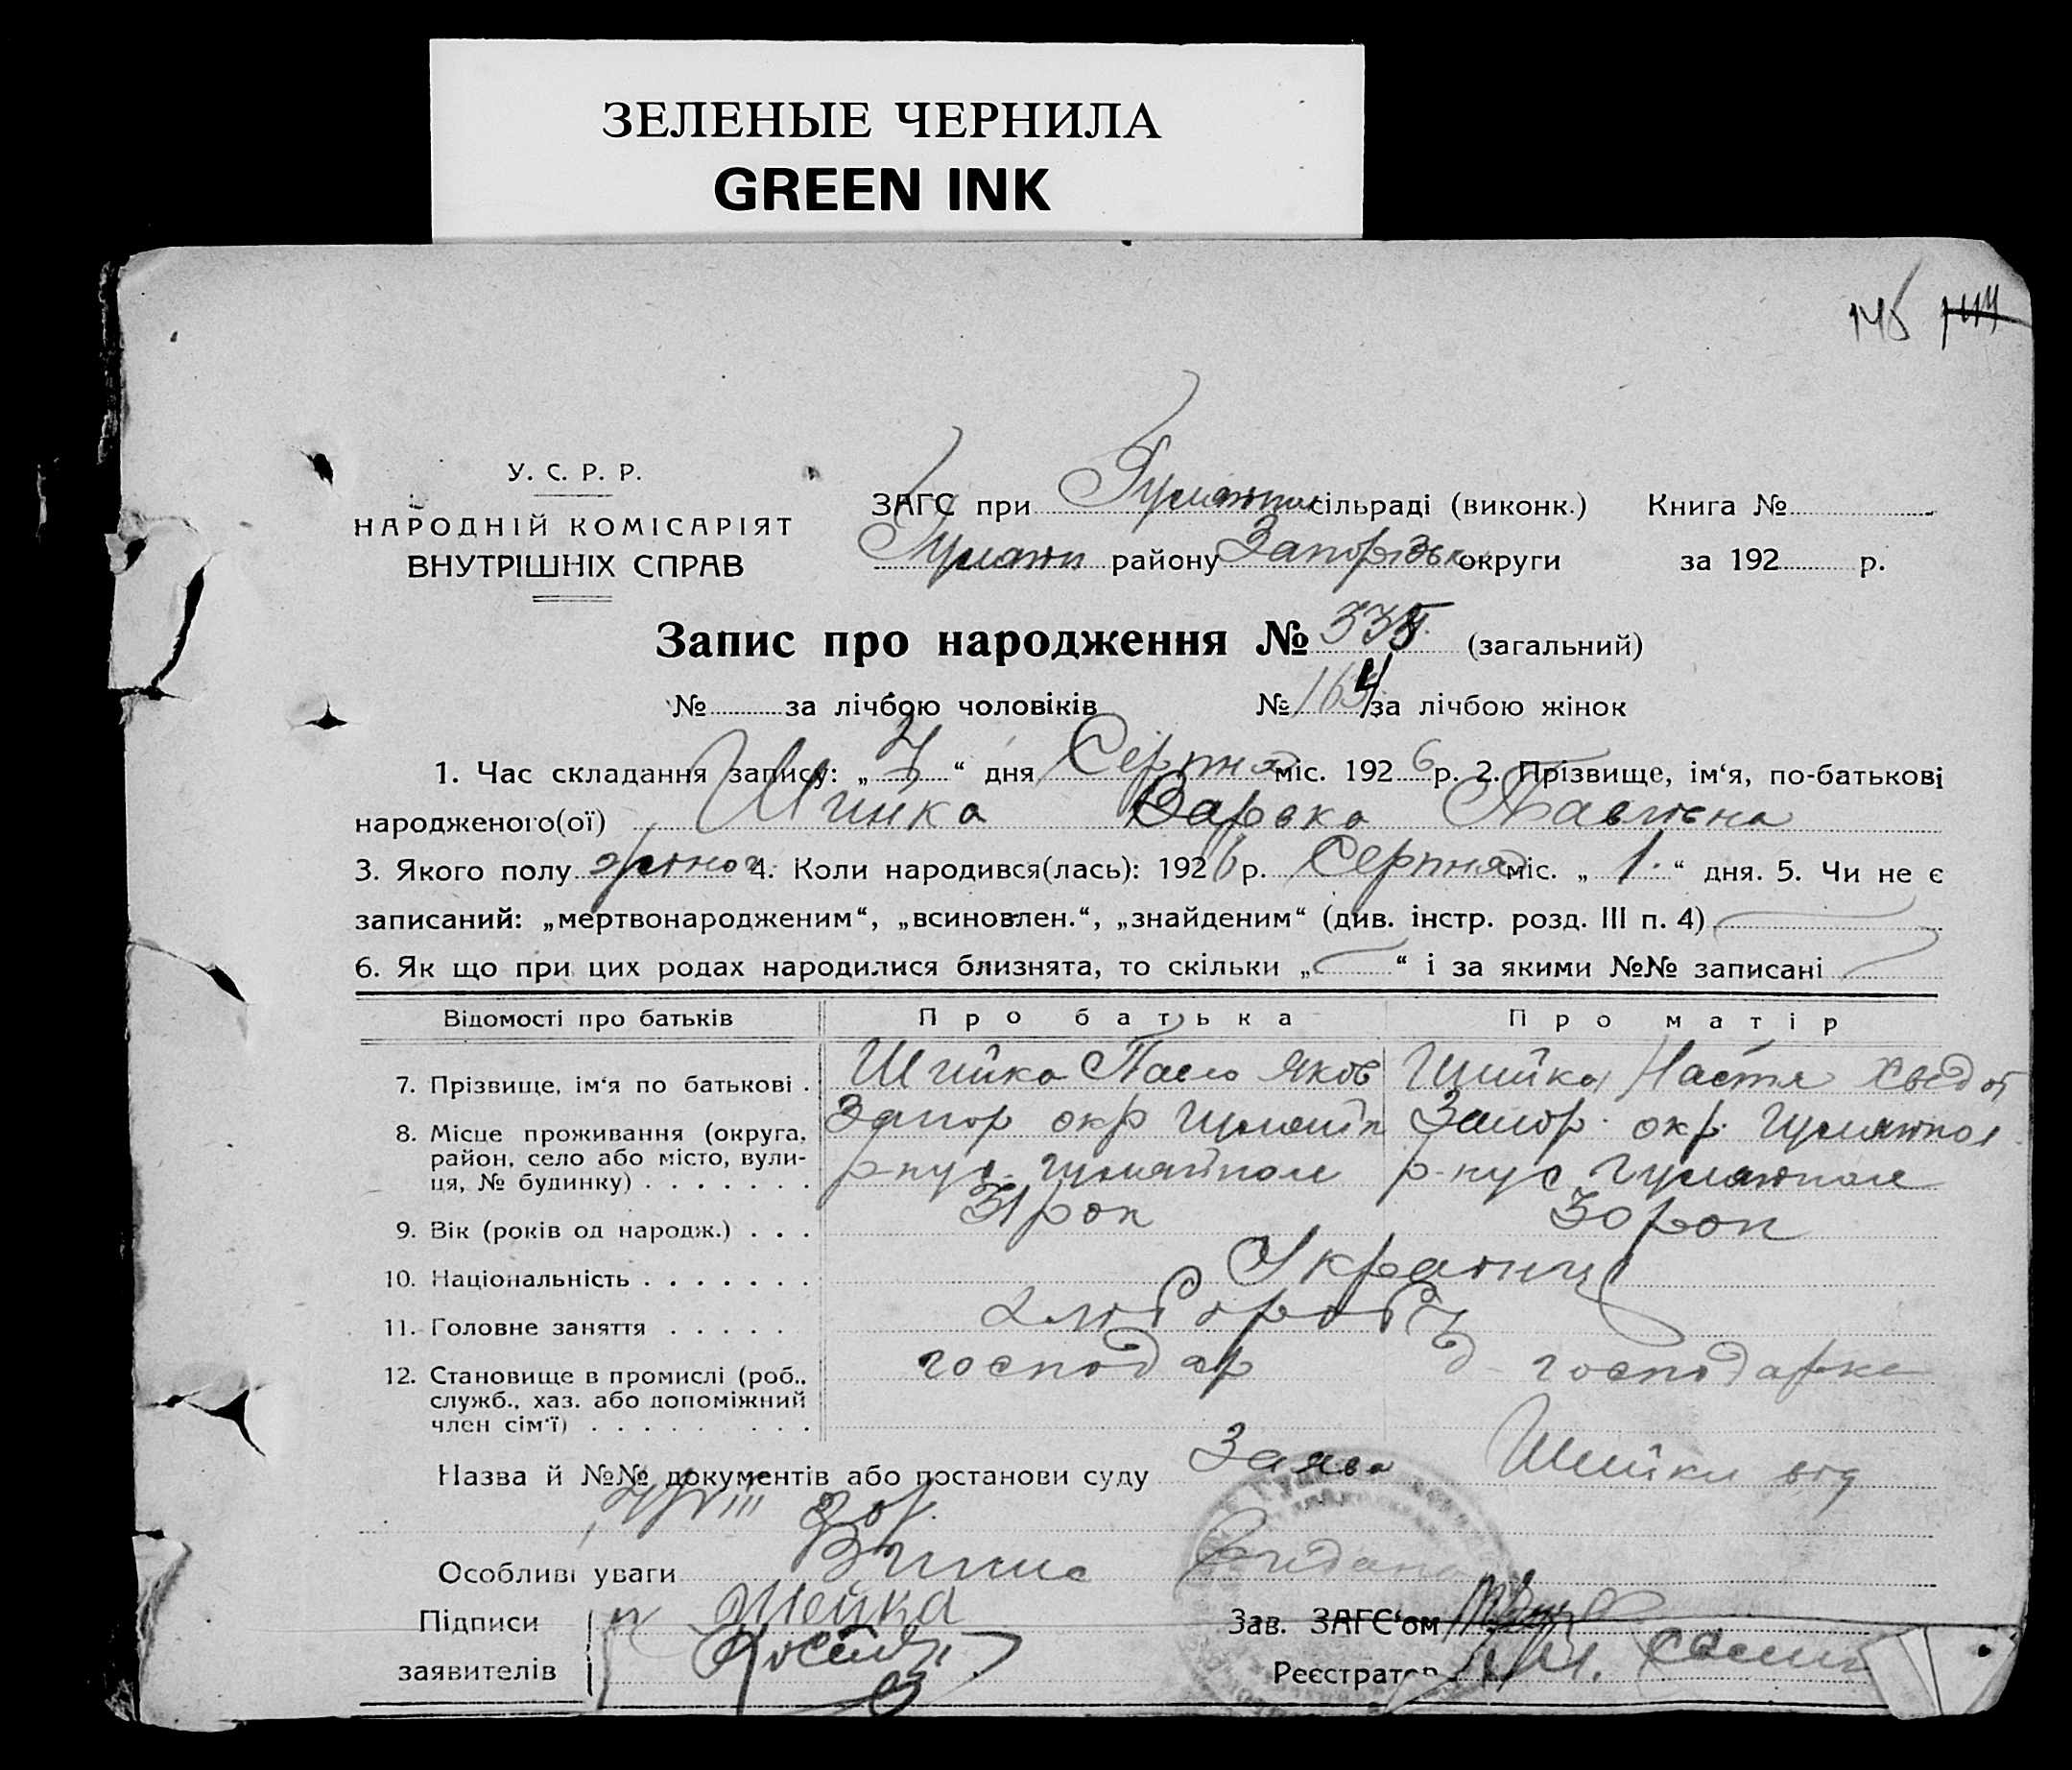 ЗЕЛЕНЫЕ ЧЕРНИЛА
GREEN INK
145 144
У. С. Р. Р.
НАРОДНІЙ КОМІСАРІЯТ
ВНУТРІШНІХ СПРАВ
ЗАГС при Гуляйпіл сільраді (виконк.) Книга №
Гуляйп району Запорізьк округи за 192 р.
Запис про народження № 335 (загальний)
№ за лічбою чоловіків № 164 за лічбою жінок
1. Час складання запису: „ 7 “ дня Серпня міс. 192 6 р. 2. Прізвище, ім‘я, по-батькові
народженого(ої) Шийка Варвка Павлівна
3. Якого полу жіноч 4. Коли народився(лась): 192 6 р. Серпня міс. „ 1. “ дня. 5. Чи не є
записаний: „мертвонародженим“, „всиновлен.“, „знайденим“ (див. інстр. розд. III п. 4)
6. Як що при цих родах народилися близнята, то скільки „ “ і за якими №№ записані
Відомості про батьків Про батька Про матір
7. Прізвище, ім‘я по батькові . Шийка Павло Яков Шийка Настя Хведот
8. Місце проживання (округа, район, село або місто, вулиця, № будинку) . . . . . . . Запор окр Гуляйп Запор. окр. Гуляйпол
Гуляйполе Гуляйполе
9. Вік (років од народж.) . . . 31 рок 30 рок
10. Національність . . . . . . . Україниц
11. Головне заняття . . . . . хлібороб
12. Становище в промислі (роб., служб., хаз. або допоміжний член сім‘ї) . . . . . . . . господар д-господарка
Назва й №№ документів або постанови суду Заява Шийки від
Особливі уваги Випис видана
Підписи Шейка Зав. ЗАГС‘ом
заявителів Реєстратор